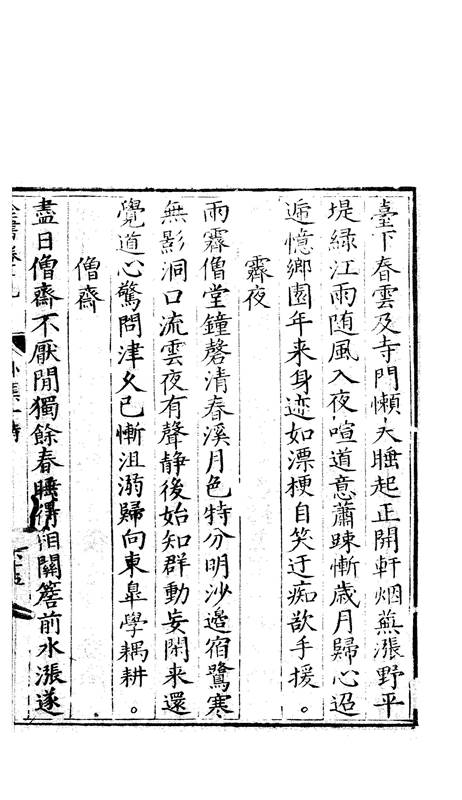 臺下春雲及寺門懶夫睡起正開軒烟蕪漲野平
堤緑江雨随風入夜喧道意蕭踈慚歳月歸心迢
遞憶鄉園年来身迹如漂梗自笑迂痴欲手援。
霽夜
雨霽僧堂鐘磬清春溪月色特分明沙邉宿鷺寒
無影洞口流雲夜有聲静後始知群動妄閑来還
覺道心驚問津久已慚沮溺歸向東臯學耦耕。
僧齋
盡日僧齋不厭閒獨餘春睡得相關簷前水漲遂